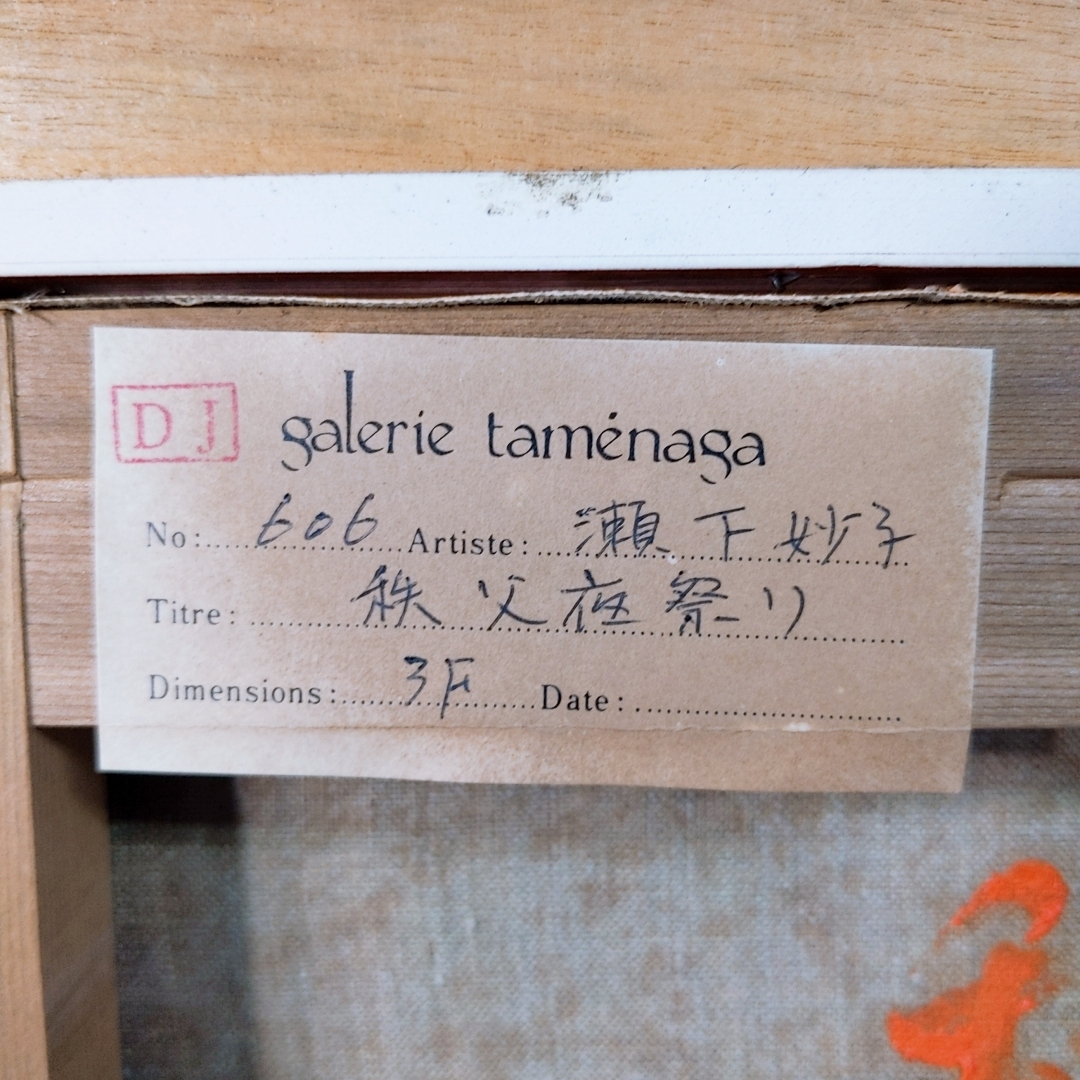 DJ
galerie taménaga
No: 606 Artiste: 瀬下妙子
Titre: 秩父夜祭り
Dimensions: 3F Date: